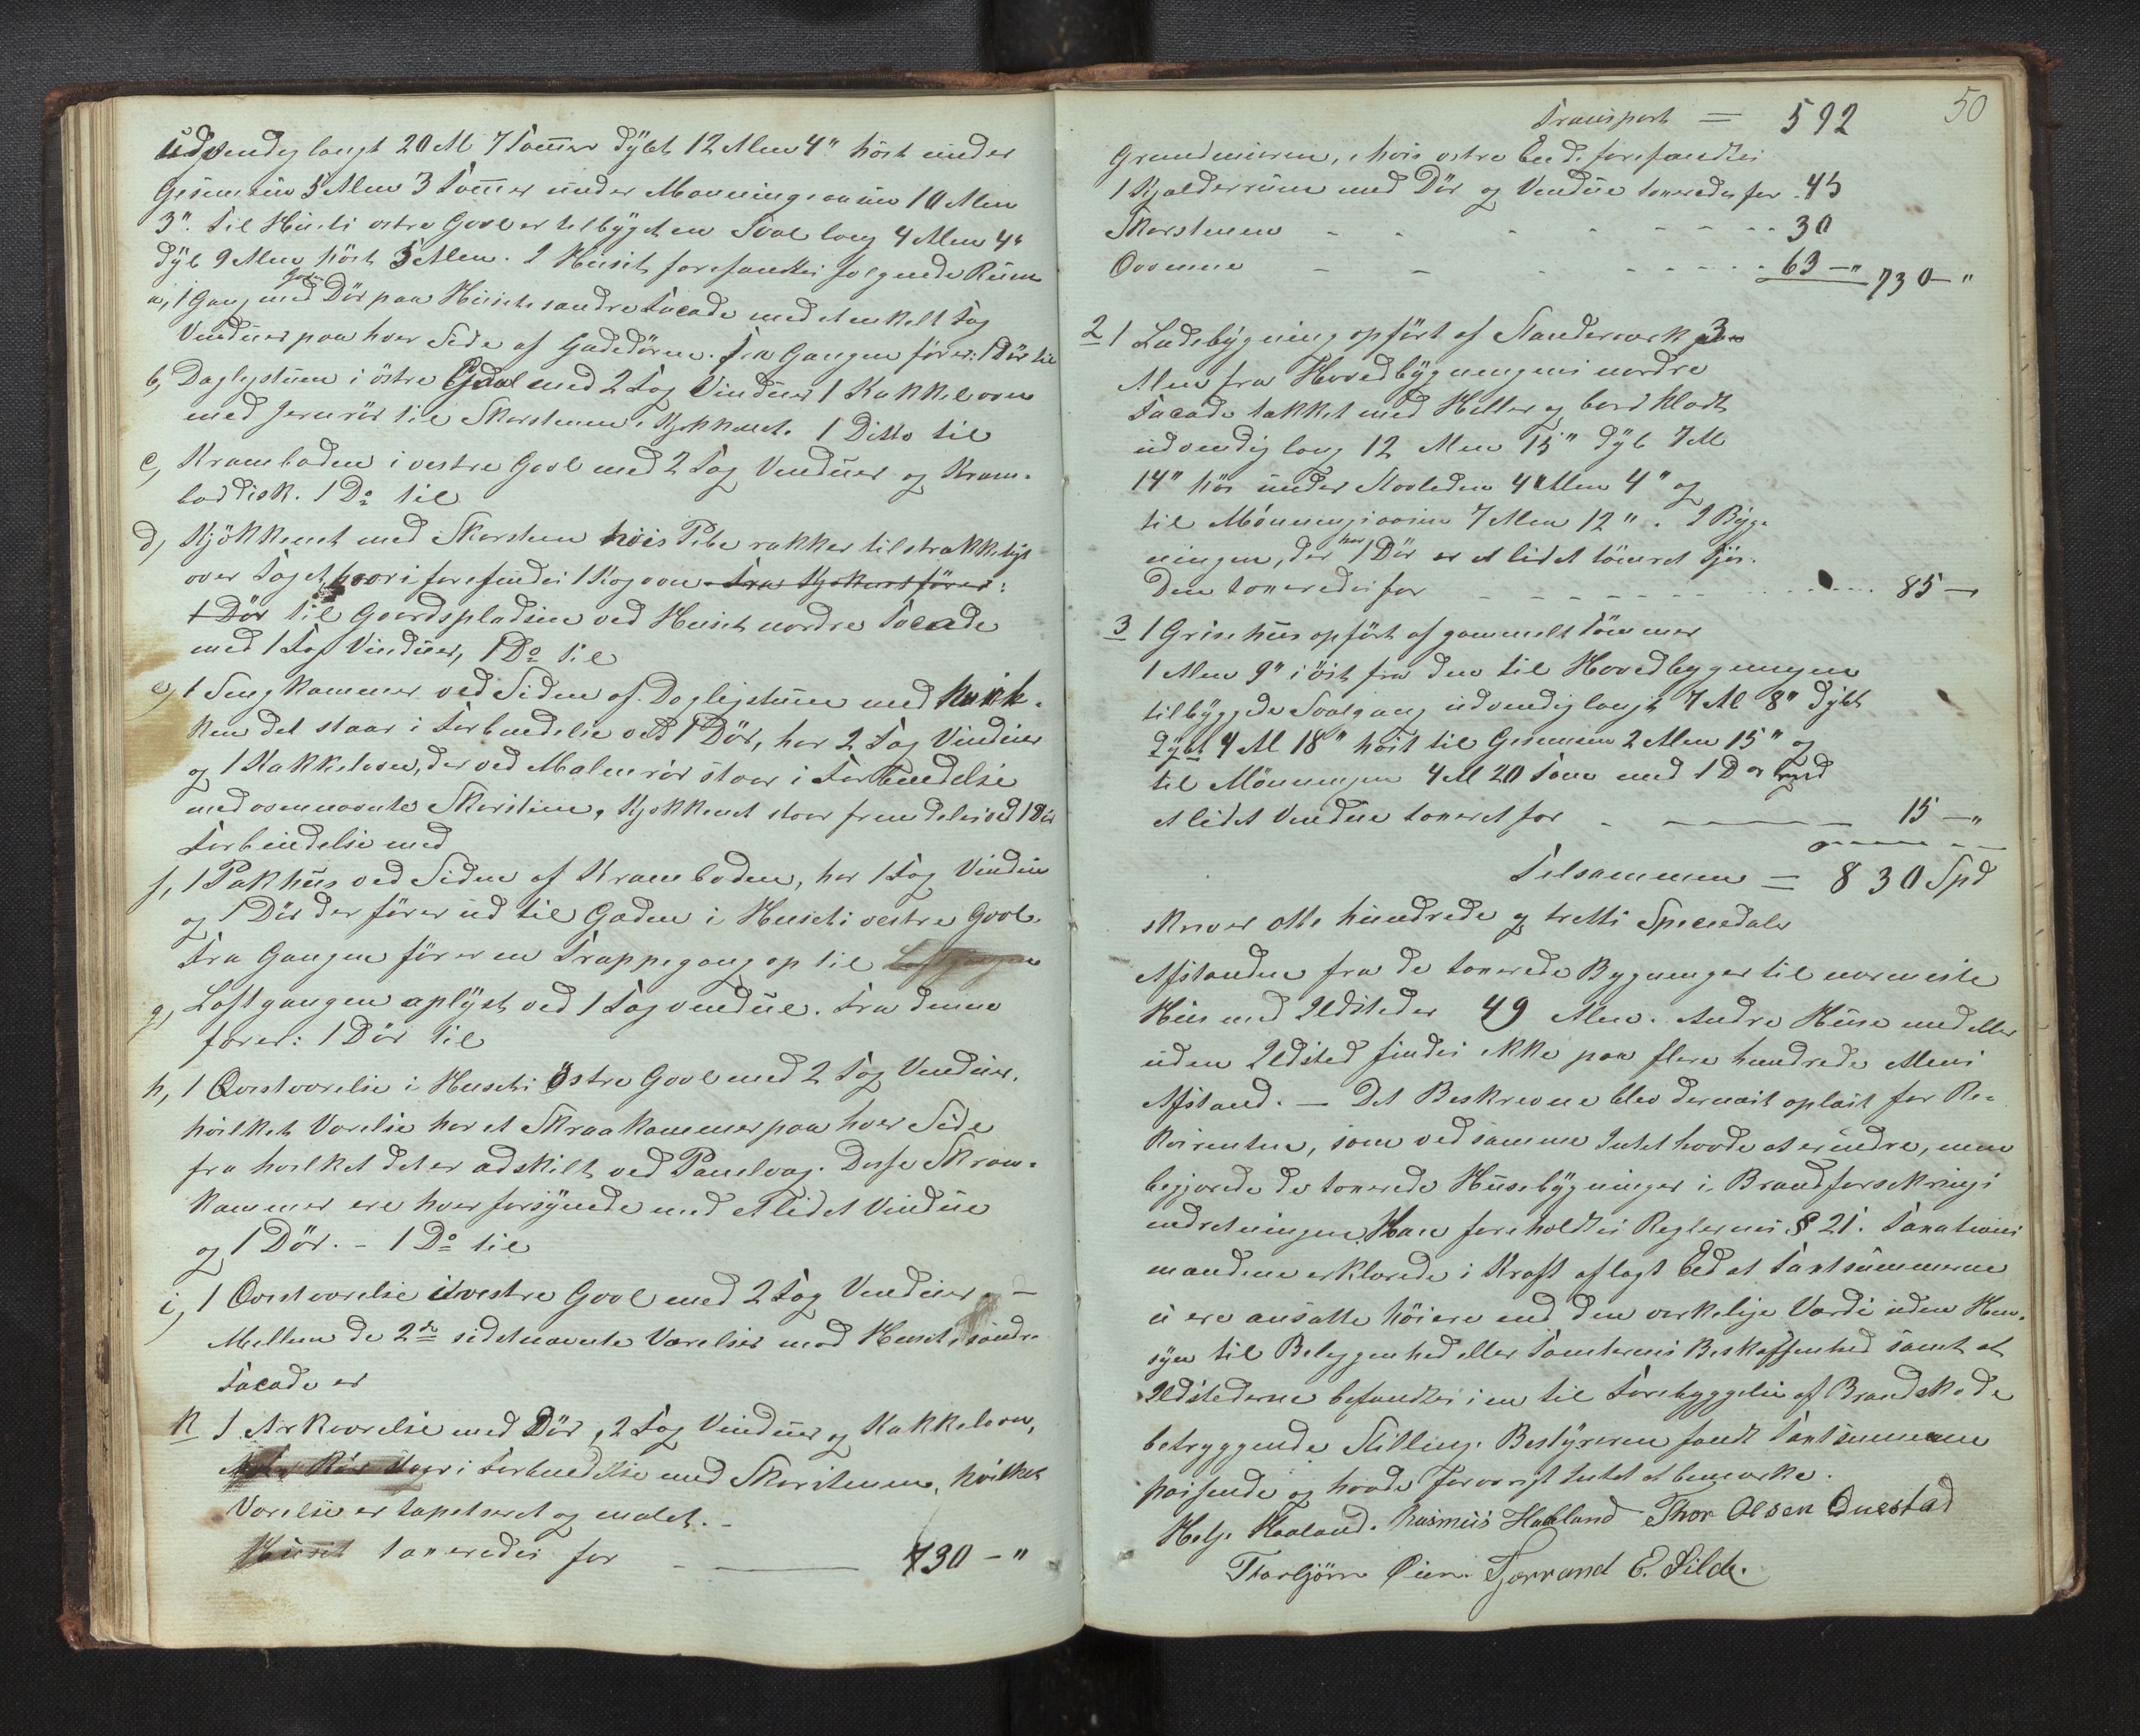 udvendig langt 20 Al 7 Tommer dÿbt 12 Alen 4" höit under
Gesimsen 5 Alen 3 Tommer under Mønningsaasen 10 Alen
3". Til Husets østre Gavl er tilbÿget en Sval lang 4 Alen 4"
dÿb 9 Alen höit 5 Alen. I Huset forefandtes følgende Rum
a, 1 Gang med Gade Dör paa Husets søndre Facade med et enkelt Fag
Vinduer paa hver Side af Gadedören. Fra Gangen fører: 1 Dör til
b, Dagligstuen i östre Gavl med 2 Fag Vinduer 1 Kakkelovn
med Jernrör til Skorstenen i Kjøkkenet. 1 Ditto til
c, Kramboden i vestre Gavl med 2 Fag Vinduer og Kram-
boddisk. 1 Do til
d, Kjökkenet med Skorsten hvis Pibe rækker tilstrækkeligt
over Taget, hvori forefindes 1 Kogovn Fra Kjøkenet fører:
1 Dör til Gaardspladsen ved Husets nordre Facade
med 1 Fag Vinduer, 1 Do til
e, 1 Sengkammer ved Siden af Dagligstuen med hvil-
ken det staar i Forbindelse ved 1 Dör, har 2 Fag Vinduer
og 1 Kakkelovn, der ved Malmrör staar i Forbindelse
med ovennævnte Skorsten, Kjøkkenet staar fremdeles ved 1 Dör
Forbindelse med
f, 1 Pakhus ved Siden af Kramboden, har 1 Fag Vindue
og 1 Dör der förer ud til Gaden i Husets vestre Gavl.
Fra Gangen förer en Trappegang op til Loftgangen
g, Loftgangen oplÿst ved 1 Fag vindue. Fra denne
fører: 1 Dör til
h, 1 Qvistværelse i Husets östre Gavl med 2 Fag Vinduer,
hvilket Værelse har et Skraakammer paa hver Side
fra hvilket det er adskilt ved Panelvæg. Disse Skraa-
kammer ere hver forsÿnede med et lidet Vindue
og 1 Dör. - 1 Do til
i, 1 Qvistværelse i vestre Gavl med 2 Fag Vinduer. -
Mellem de 2de sidstnævnte Værelser mod Husets söndre
Facade er
k 1 Arkværelse med Dör, 2 Fag Vinduer og Kakkelovn,
Rör staar i Forbindelse med Skorstenen, hvilket
Værelse er tapetseret og malet. -
Huset taxeredes for - — 730 - "
50
Transport = 592
Grundmuren, i hvis østre Ende forefandtes
1 Kjælderrum med Dör og Vindue taxeredes for . 45
Skorstenen - - - - - - 30
Ovnene - - - - - - 63 - " 730 - "
2 1 Ladebÿgning opfört af Standerværk 3
Alen fra Hovedbÿgningens nordre
Facade takket med Heller og bordklædt
udvendig lang 12 Alen 15" dÿb 7 Al
14" höi under Stavleden 4 Alen 4" og
til Mönningsaasen 7 Alen 12". I Bÿg-
ningen, der har 1 Dör er et lidet tömret Fjös.
Den taxeredes for - - - - - - 85 -
3 1 Grisehus opfört af gammelt Tömmer
1 Alen 9" i öst fra den til Hovedbygningen
tilbÿggede Svalgang udvendig langt 7 Al 8" dÿbt
dÿbt 4 Al 18" höit til Gesimsen 2 Alen 15" og
til Mönningen 4 Al 20 Tom med 1 Dör og
et lidet Vindue taxeret for - — 15 - "
Tilsammen = 830 Spd
skriver otte hundrede og tretti Speciedaler
Afstanden fra de taxerede Bygninger til nærmeste
Hus med Ildsteder 49 Alen. Andre Huse med eller
uden Ildsted findes ikke paa flere hundrede Alens
Afstand. — Det Beskrevne blev dernæst oplæst for Re-
kvirenten, som ved samme Intet havde at erindre, men
begjærede de taxerede Husebÿgninger i Brandforsikrings
indretningen. Han foreholdtes Reglernes § 21. Taxations
mændene erklærede i Kraft aflagt Eed at Taxtsummerne
ei ere ansatte höiere end den virkelige Værdi uden Hen-
syn til Beliggenhed eller Tomternes Beskaffenhed samt at
Ildstederne befandtes i en til Forebyggelse af Brandskade
betryggende Stilling. Bestÿreren fandt Taxtsummerne
passende og havde forøvrigt Intet at bemærke.
Helge Haaland. Rasmus Haaland Thor Olsen Qvestad
Thorbjörn Øien. Tjerrand E. Silde.